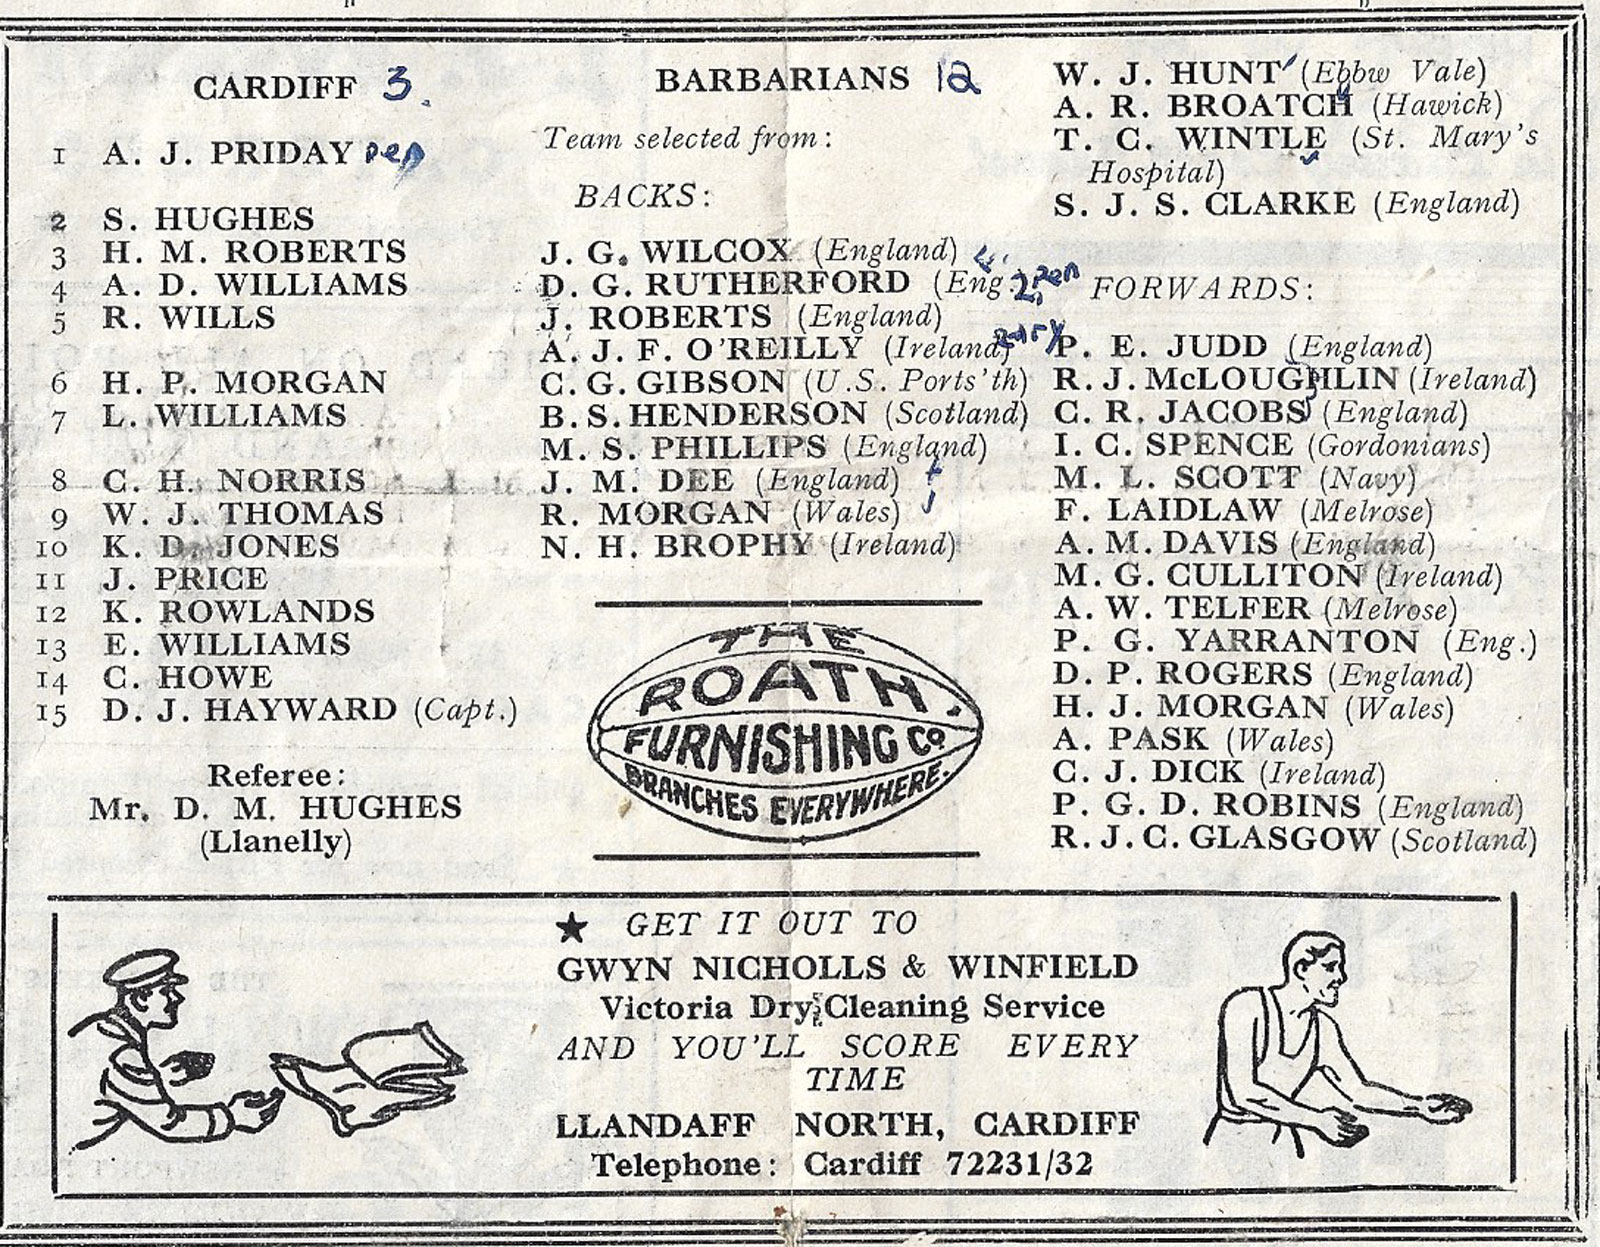 CARDIFF 3.
1 A. J. PRIDAY pen
2 S. HUGHES
3 H. M. ROBERTS
4 A. D. WILLIAMS
5 R. WILLS
6 H. P. MORGAN
7 L. WILLIAMS
8 C. H. NORRIS
9 W. J. THOMAS
10 K. D. JONES
11 J. PRICE
12 K. ROWLANDS
13 E. WILLIAMS
14 C. HOWE
15 D. J. HAYWARD (Capt.)
Referee:
Mr. D. M. HUGHES
(Llanelly)
BARBARIANS 12
Team selected from:
BACKS:
J. G. WILCOX (England)
D. G. RUTHERFORD (Eng.) 2 pen
J. ROBERTS (England)
A. J. F. O'REILLY (Ireland)
C. G. GIBSON (U.S. Ports'th)
B. S. HENDERSON (Scotland)
M. S. PHILLIPS (England)
J. M. DEE (England)
R. MORGAN (Wales)
N. H. BROPHY (Ireland)
THE
ROATH
FURNISHING Co.
BRANCHES EVERYWHERE.
W. J. HUNT (Ebbw Vale)
A. R. BROATCH (Hawick)
T. C. WINTLE (St. Mary's
Hospital)
S. J. S. CLARKE (England)
FORWARDS:
P. E. JUDD (England)
R. J. McLOUGHLIN (Ireland)
C. R. JACOBS (England)
I. C. SPENCE (Gordonians)
M. L. SCOTT (Navy)
F. LAIDLAW (Melrose)
A. M. DAVIS (England)
M. G. CULLITON (Ireland)
A. W. TELFER (Melrose)
P. G. YARRANTON (Eng.)
D. P. ROGERS (England)
H. J. MORGAN (Wales)
A. PASK (Wales)
C. J. DICK (Ireland)
P. G. D. ROBINS (England)
R. J. C. GLASGOW (Scotland)
★ GET IT OUT TO
GWYN NICHOLLS & WINFIELD
Victoria Dry Cleaning Service
AND YOU'LL SCORE EVERY
TIME
LLANDAFF NORTH, CARDIFF
Telephone: Cardiff 72231/32